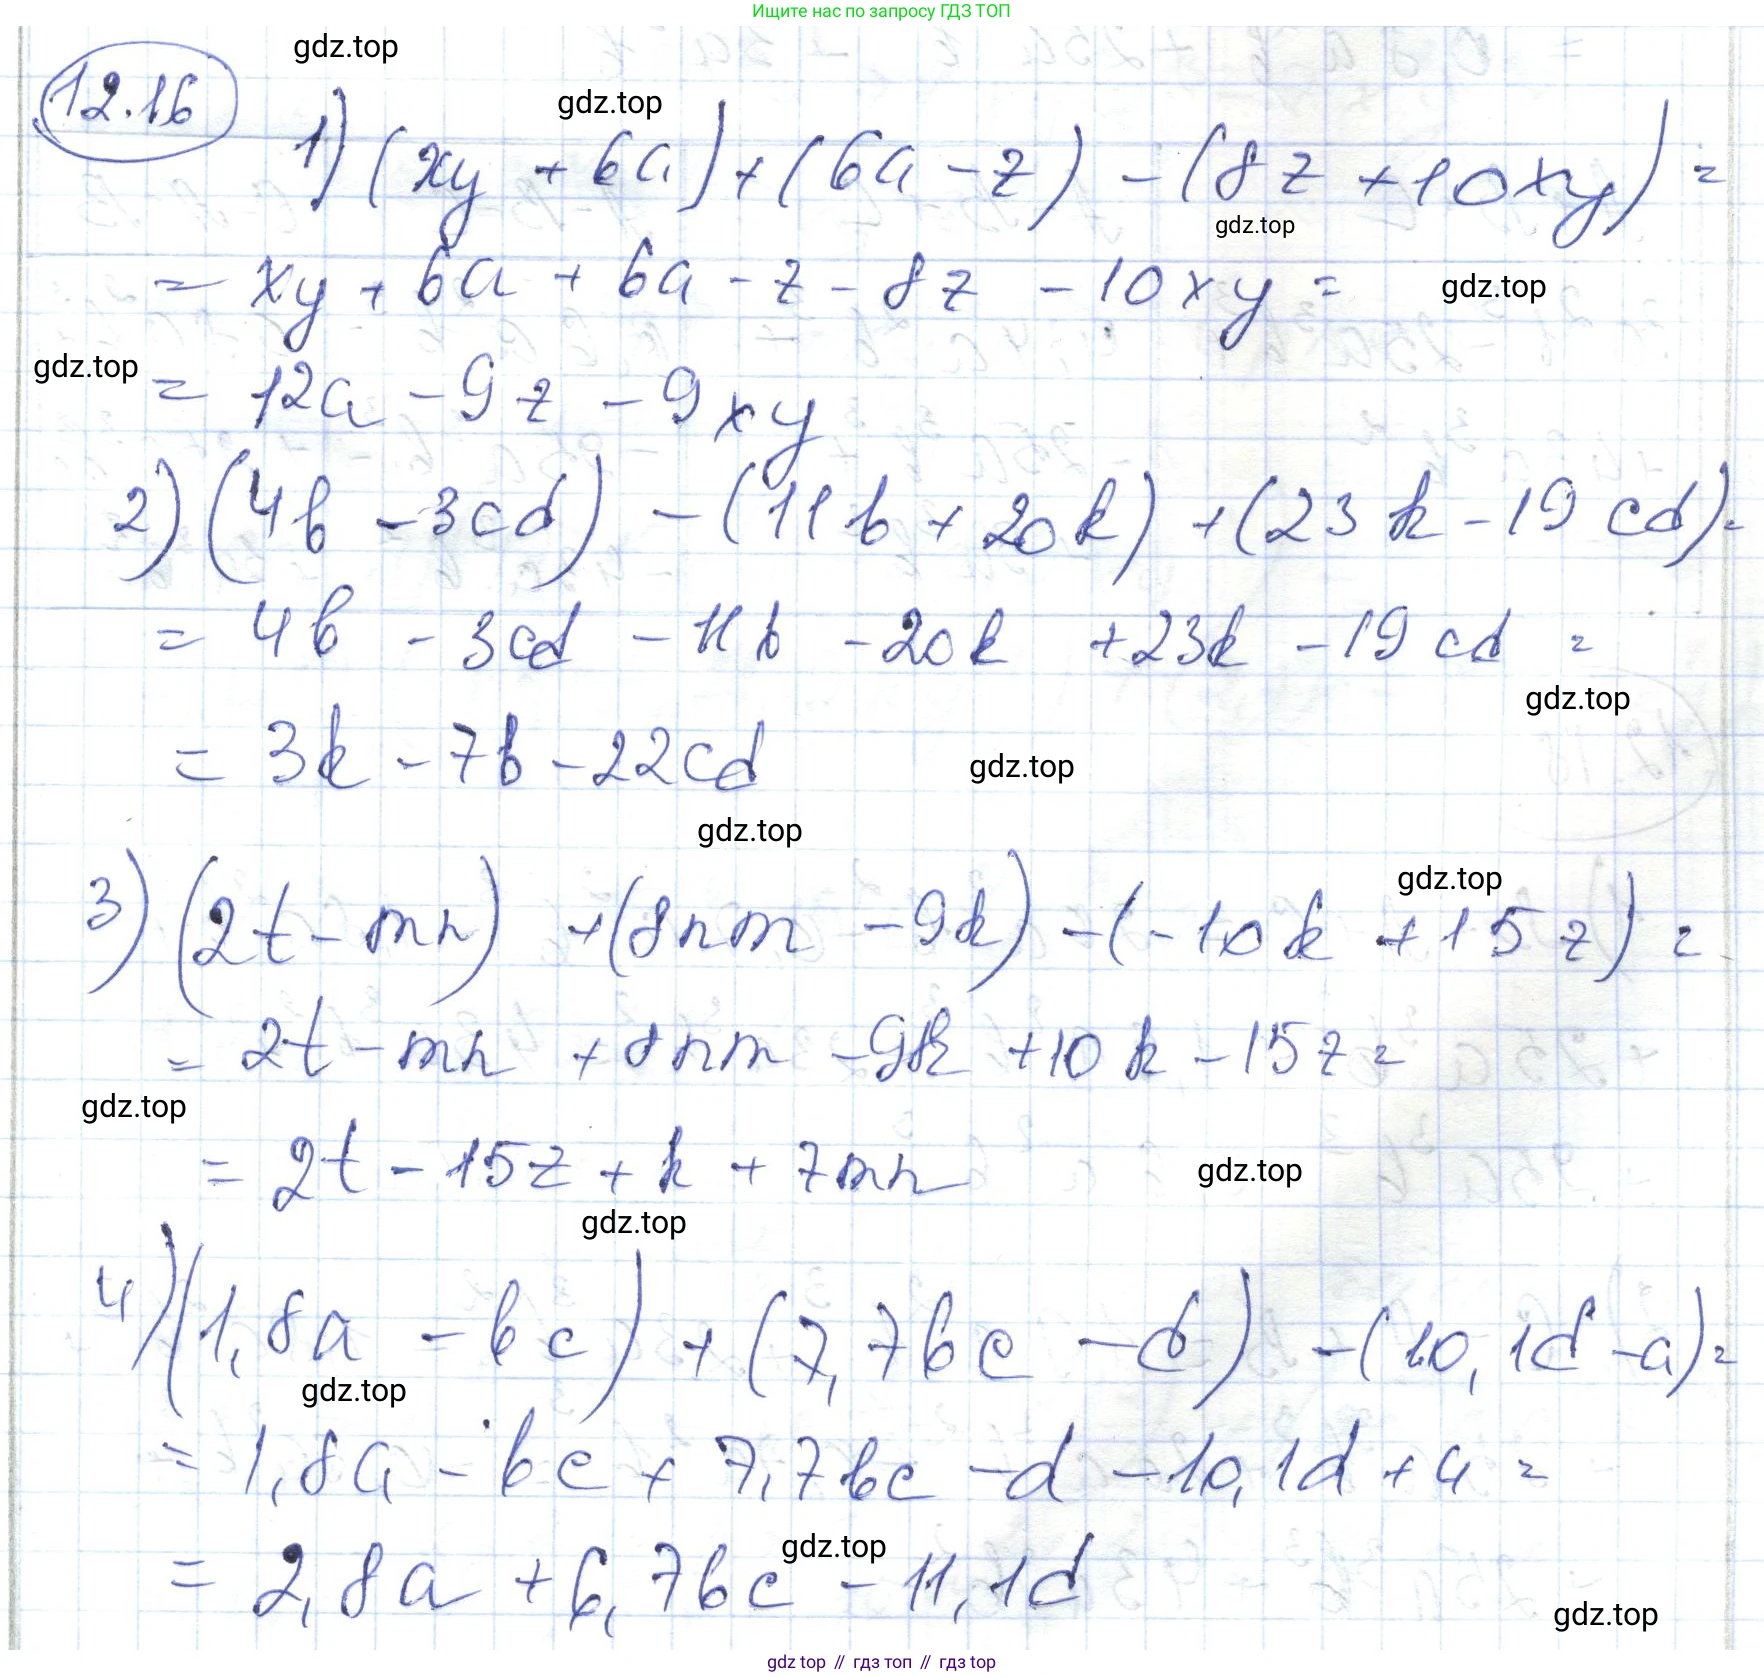 Ищите нас по запросу ГДЗ ТОП
gdz.top
12.16
gdz.top
1) (xy + 6a) + (6a - z) - (8z + 10xy) =
gdz.top
= xy + 6a + 6a - z - 8z - 10xy =
gdz.top
gdz.top
= 12a - 9z - 9xy
2) (4b - 3cd) - (11b + 20k) + (23k - 19cd) =
= 4b - 3cd - 11b - 20k + 23k - 19cd =
gdz.top
= 3k - 7b - 22cd
gdz.top
gdz.top
gdz.top
3) (2t - mn) + (8nm - 9k) - (-10k + 15z) =
= 2t - mn + 8nm - 9k + 10k - 15z =
gdz.top
= 2t - 15z + k + 7mn
gdz.top
gdz.top
4) (1,8a - bc) + (7,7bc - d) - (10,1d - a) =
gdz.top
= 1,8a - bc + 7,7bc - d - 10,1d + a =
gdz.top
= 2,8a + 6,7bc - 11,1d
gdz.top
gdz top // гдз топ // гдз top